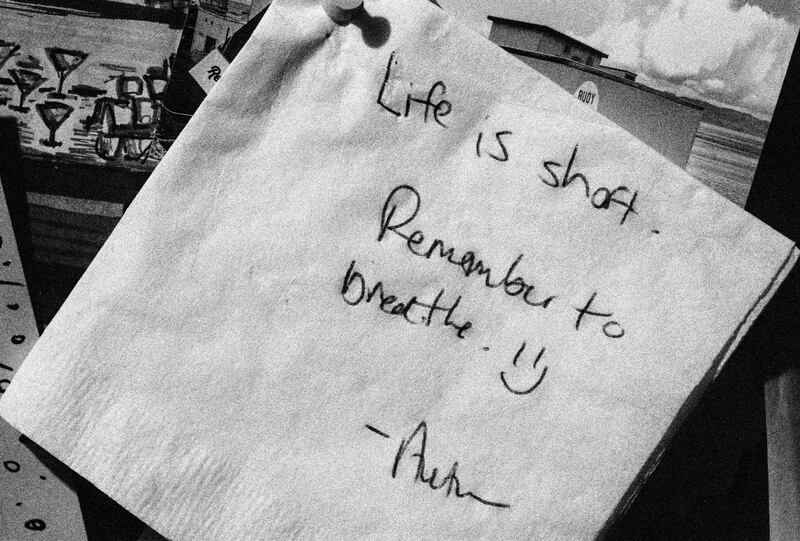 Life is short.
Remember to
breathe. :)
RUDY